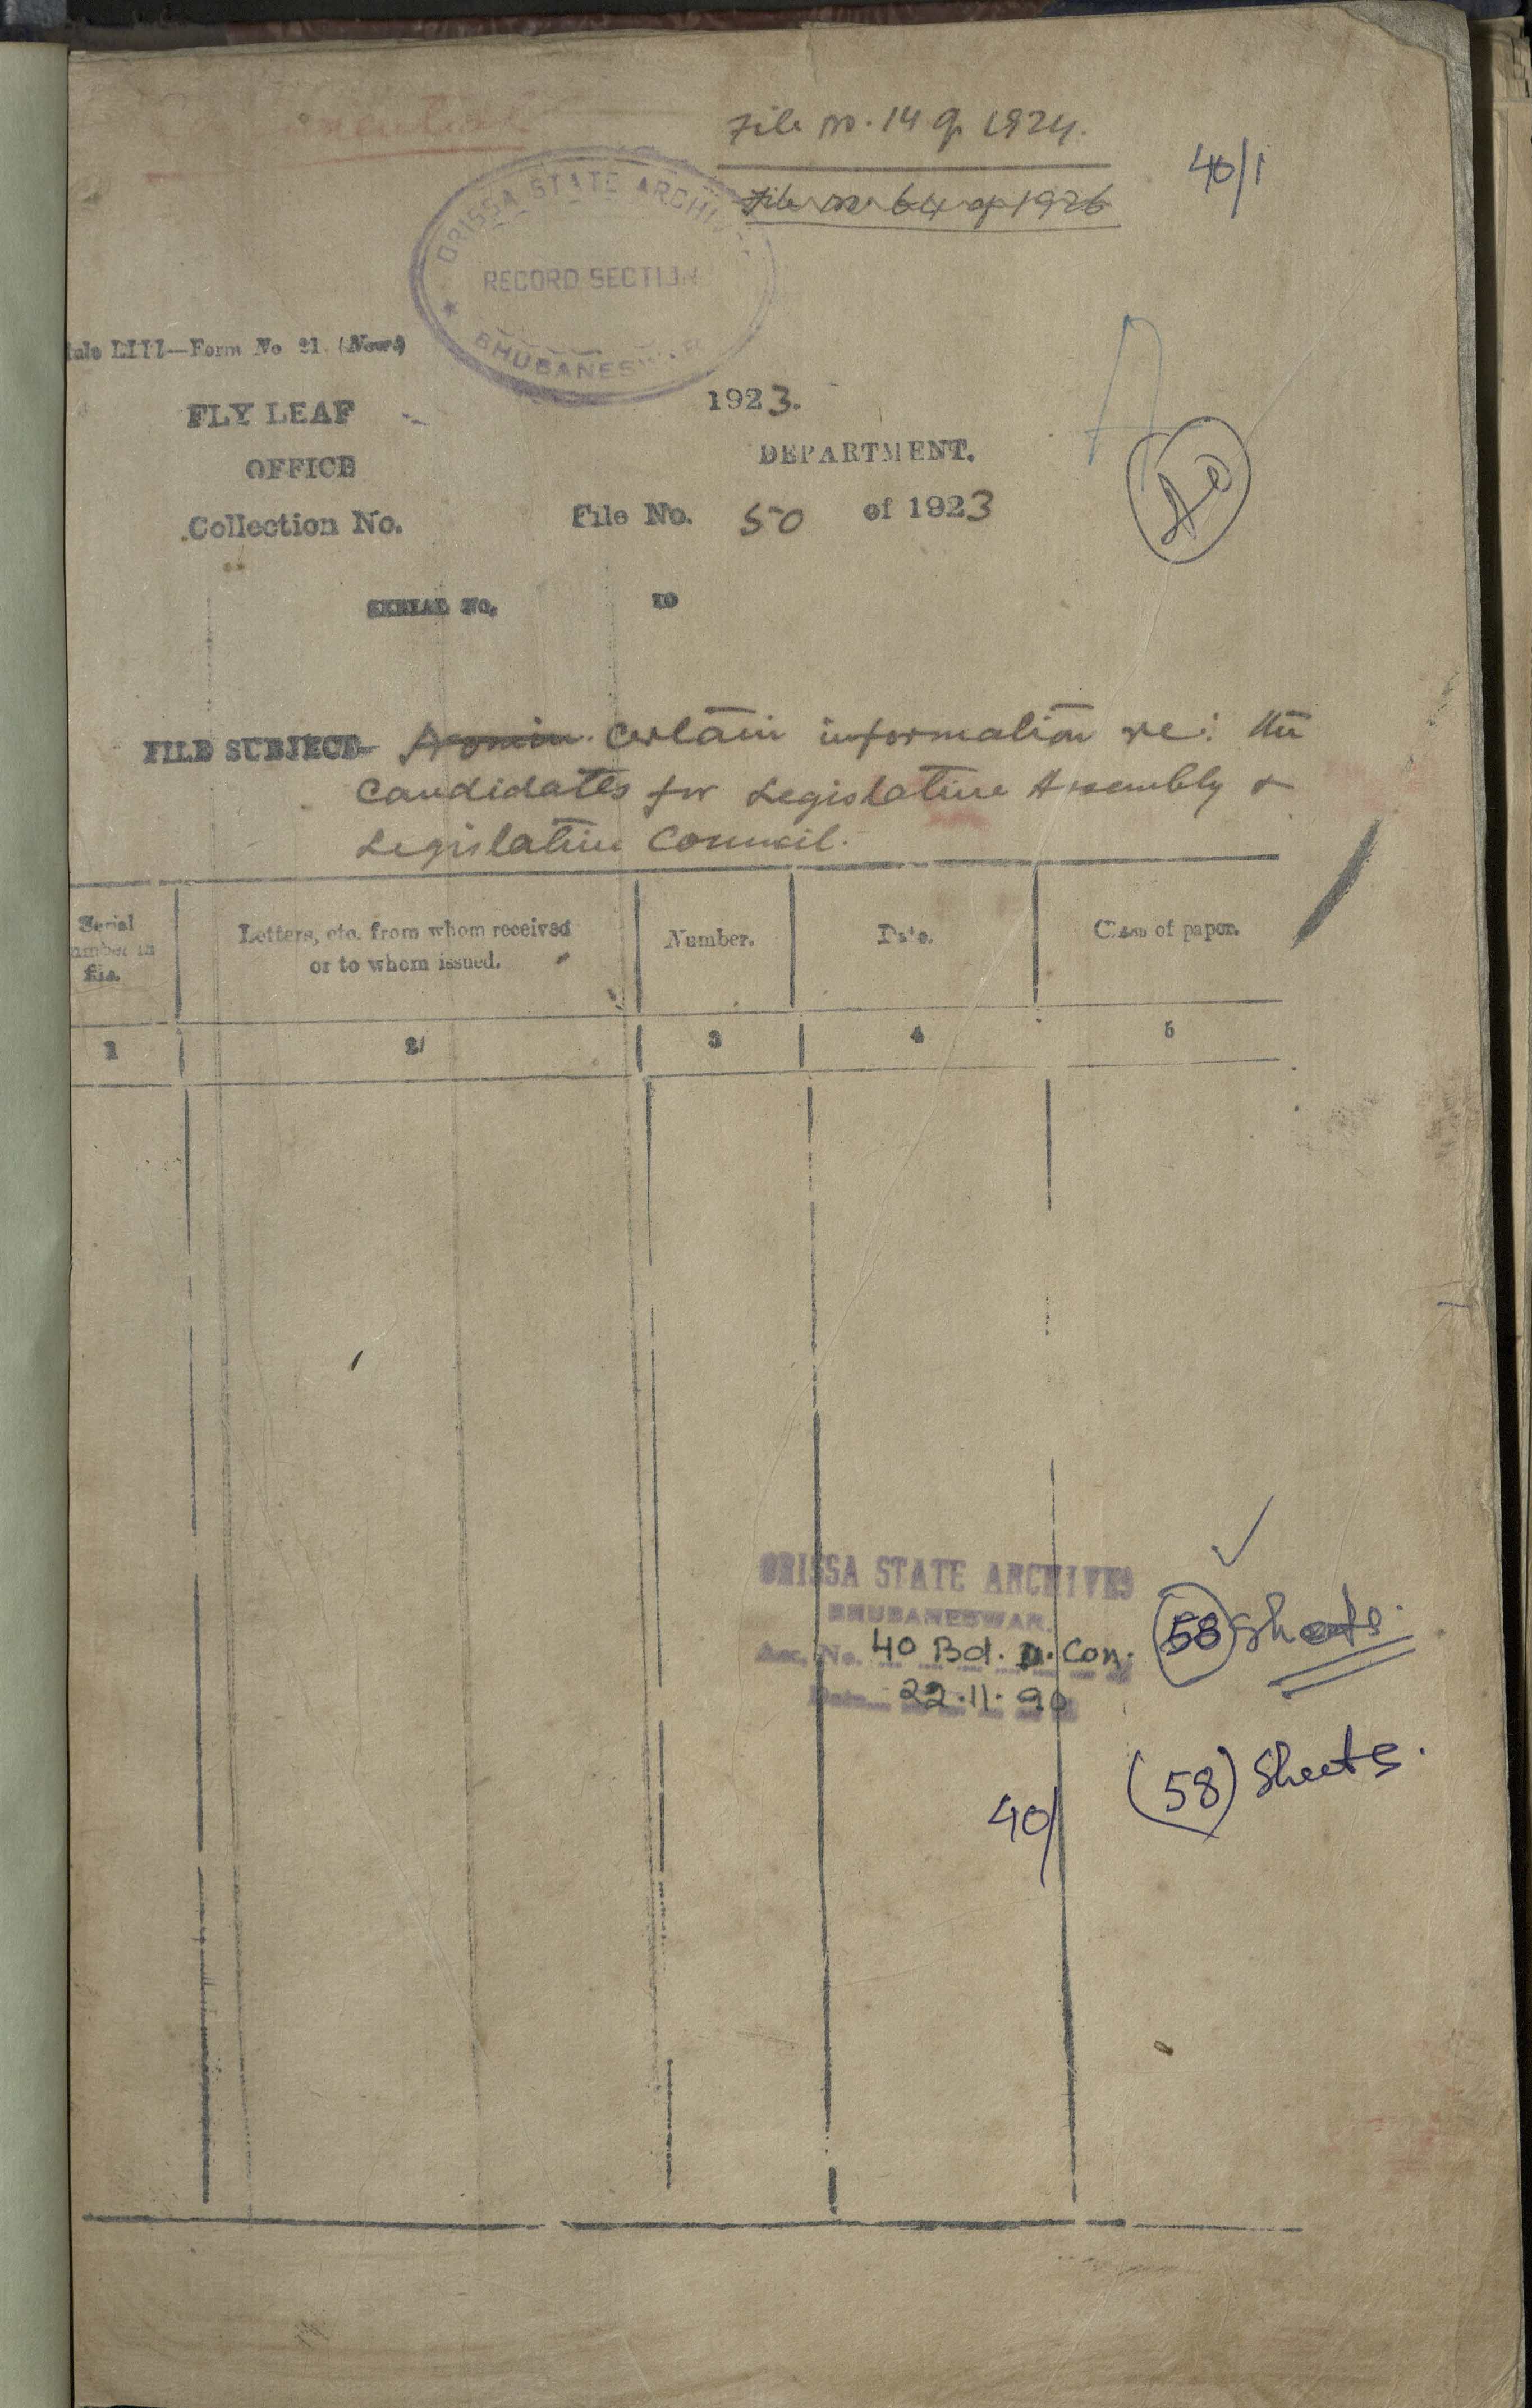 File no. 14 of 1924.
40/1
File no 64 of 1926
ORISSA STATE ARCHIV
RECORD SECTION
BHUBANESWAR
LIII—Form No 21.
FLY LEAF
1923.
DEPARTMENT.
OFFICE
Collection No.
File No. 50 of 1923
SERIAL NO. TO
FILE SUBJECT— Certain information re: the
Candidates for Legislative Assembly &
Legislative Council.
Serial
number in
file.
Letters, etc. from whom received
or to whom issued.
Number.
Date.
Class of paper.
1 2 3 4 5
ORISSA STATE ARCHIVES
BHUBANESWAR.
Acc. No. 40 Bd. D. Con.
Date 22.11.90
58 Sheets.
(58) Sheets.
40/